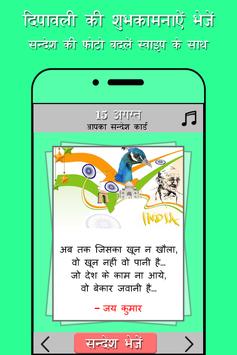 दिपावली की शुभकामनाऐं भेजें
सन्देश की फोटो बदलें स्वाइप के साथ
15 अगस्त
आपका सन्देश कार्ड
INDIA
अब तक जिसका खून न खौला,
वो खून नहीं वो पानी है...
जो देश के काम ना आये,
वो बेकार जवानी है...
– जय कुमार
सन्देश भेजें